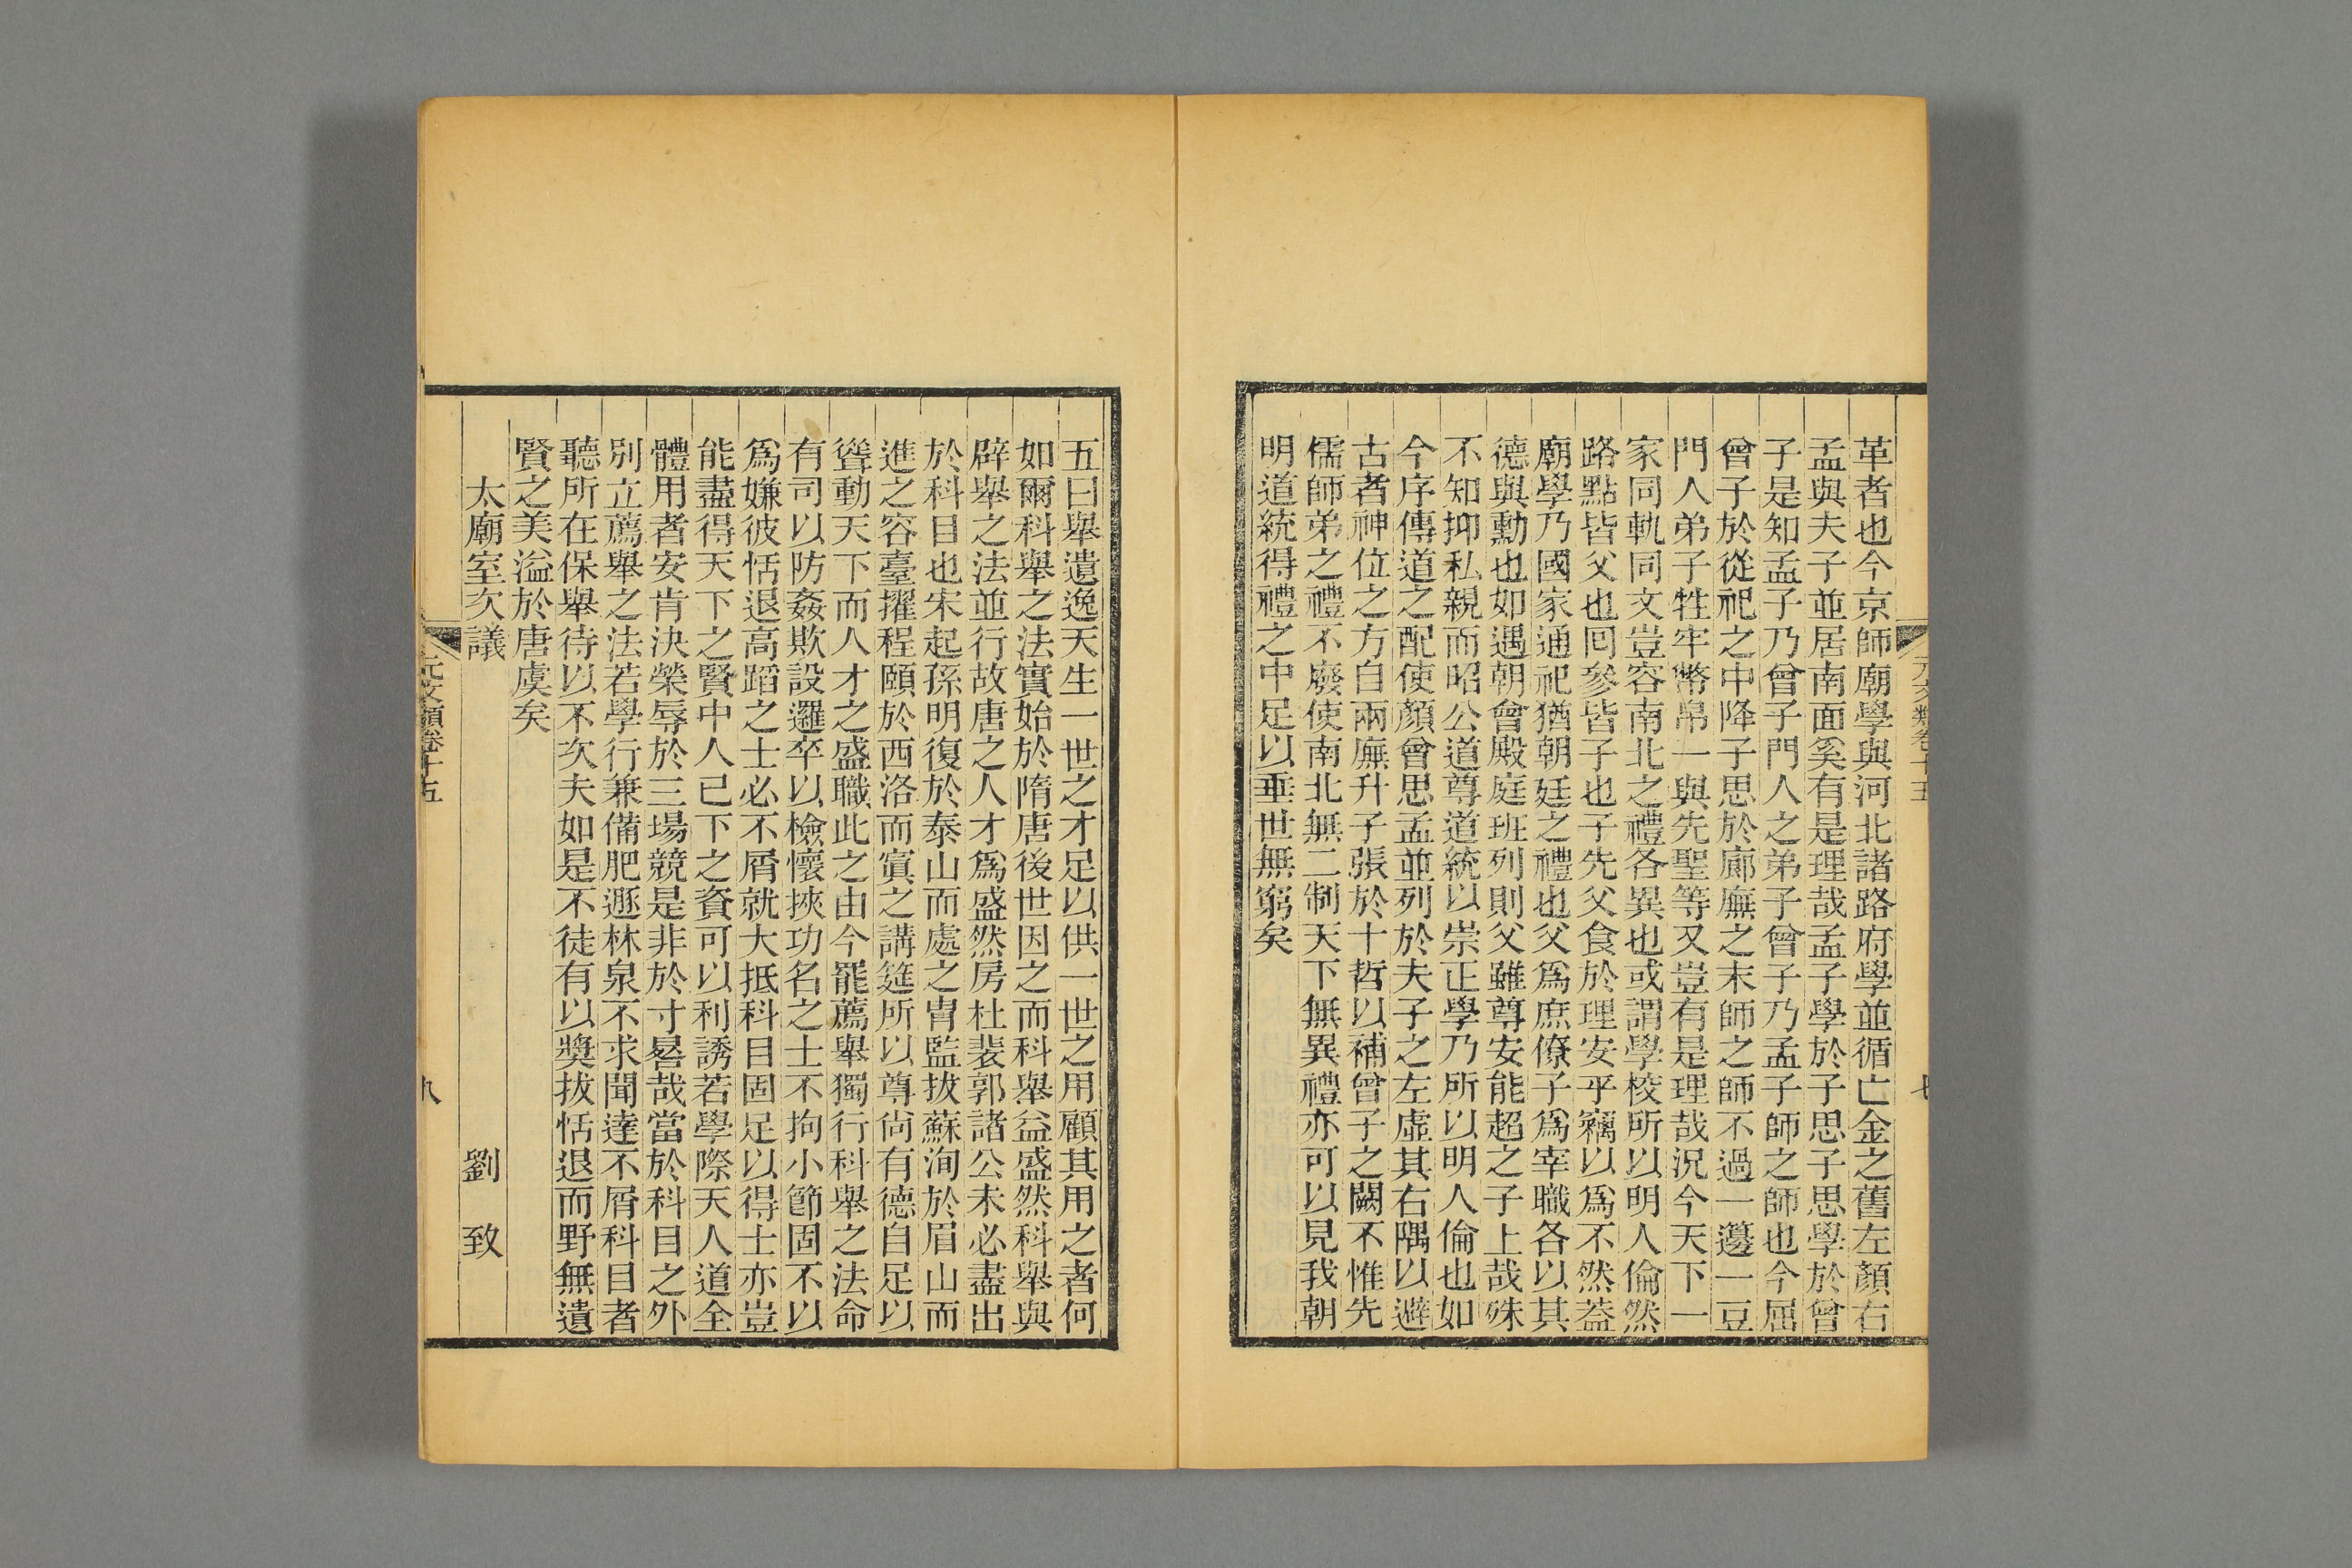 革者也今京師廟學與河北諸路府學並循亡金之舊左顏右
孟與夫子並居南面奚有是理哉孟子學於子思子思學於曾
子是知孟子乃曾子門人之弟子曾子乃孟子師之師也今屈
曾子於從祀之中降子思於廊廡之末師之師不過一籩一豆
門人弟子牲牢幣帛一與先聖等又豈有是理哉況今天下一
家同軌同文豈容南北之禮各異也或謂學校所以明人倫然
路點皆父也回參皆子也子先父食於理安乎竊以爲不然葢
廟學乃國家通祀猶朝廷之禮也父爲庶僚子爲宰職各以其
德與勳也如遇朝會殿庭班列則父雖尊安能超之子上哉殊
不知抑私親而昭公道尊道統以崇正學乃所以明人倫也如
今序傳道之配使顏曾思孟並列於夫子之左虛其右隅以避
古者神位之方自兩廡升子張於十哲以補曾子之闕不惟先
儒師弟之禮不廢使南北無二制天下無異禮亦可以見我朝
明道統得禮之中足以垂世無窮矣
元文類卷十五
七
五曰舉遺逸天生一世之才足以供一世之用顧其用之者何
如爾科舉之法實始於隋唐後世因之而科舉益盛然科舉與
辟舉之法並行故唐之人才爲盛然房杜裴郭諸公未必盡出
於科目也宋起孫明復於泰山而處之冑監拔蘇洵於眉山而
進之容臺擢程頤於西洛而寘之講筵所以尊尙有德自足以
聳動天下而人才之盛職此之由今罷薦舉獨行科舉之法命
有司以防姦欺設邏卒以檢懷挾功名之士不拘小節固不以
爲嫌彼恬退高蹈之士必不屑就大抵科目固足以得士亦豈
能盡得天下之賢中人已下之資可以利誘若學際天人道全
體用者安肯決榮辱於三場競是非於寸晷哉當於科目之外
別立薦舉之法若學行兼備肥遯林泉不求聞達不屑科目者
聽所在保舉待以不次夫如是不徒有以獎拔恬退而野無遺
賢之美溢於唐虞矣
太廟室次議　劉　致
元文類卷十五
八